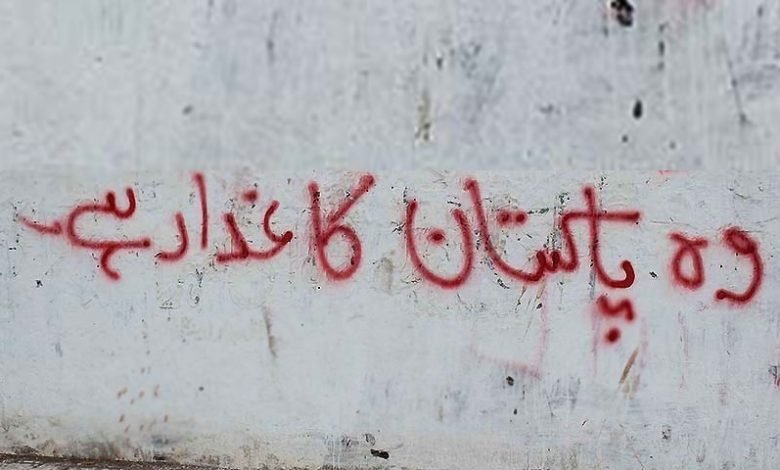 وہ پاکستان کا غدار ہے